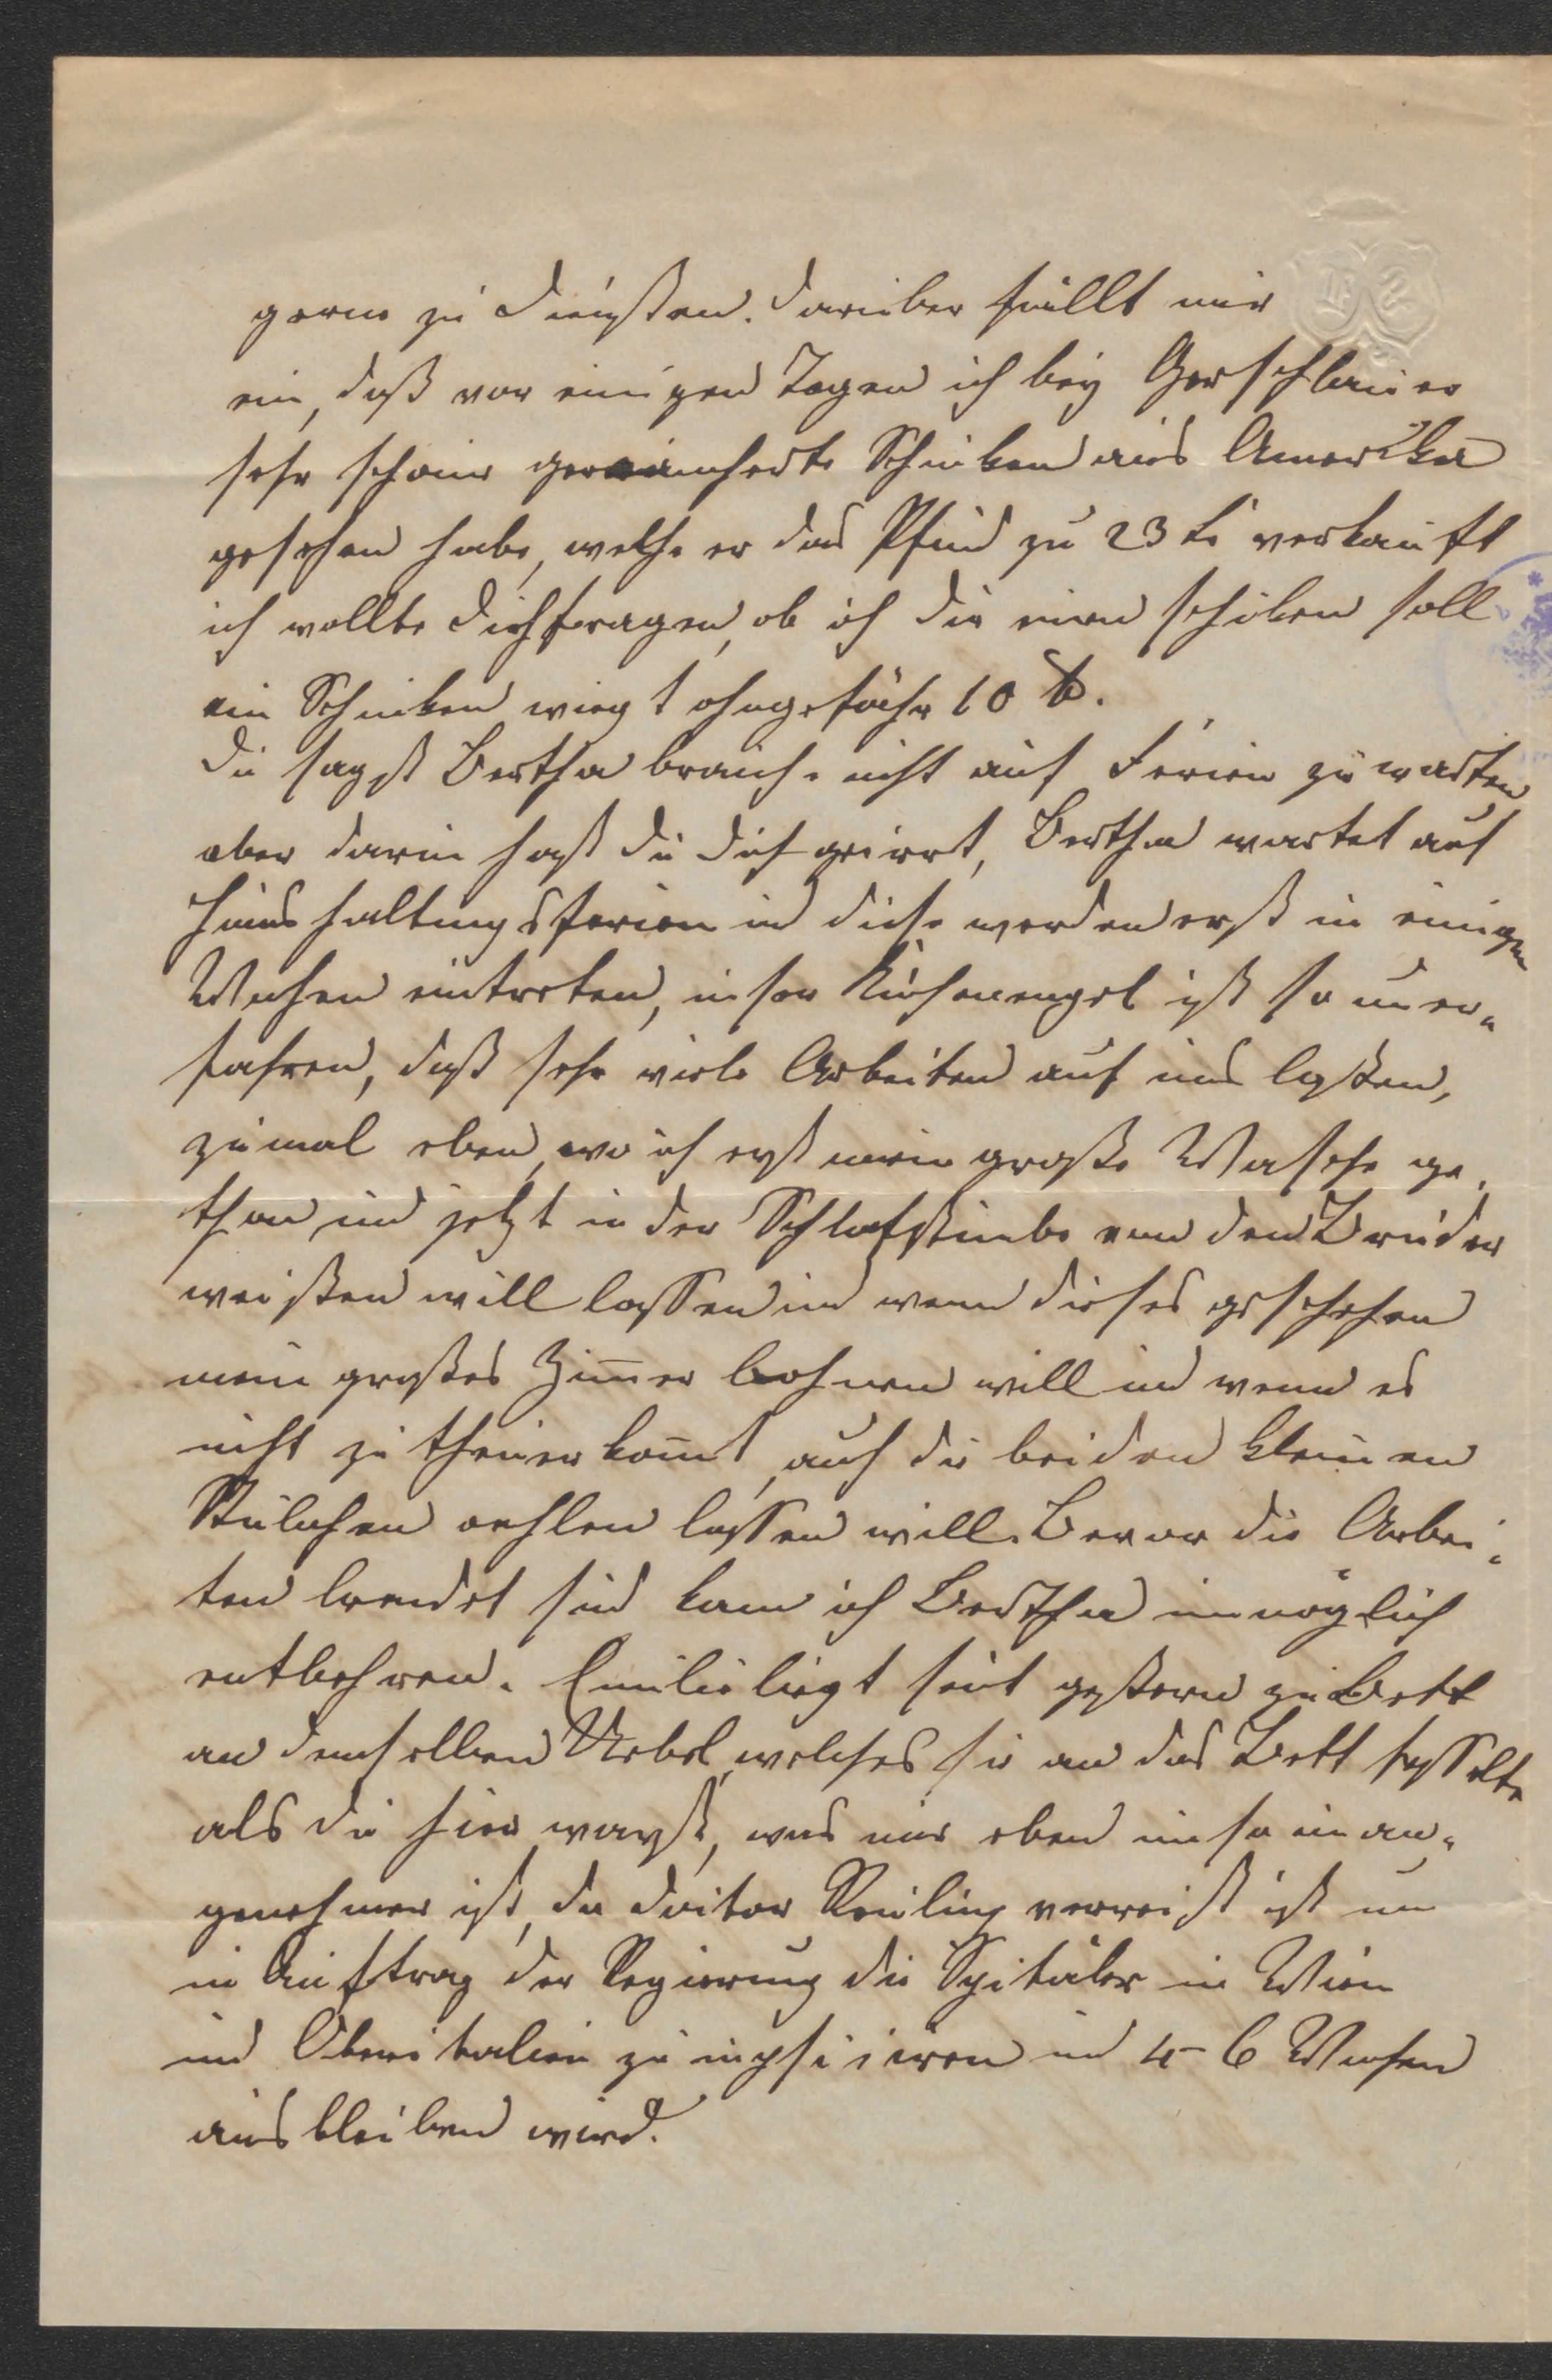 gerne zu Diensten. Darüber fällt mir
ein, daß vor einigen Tagen ich bey Gerschlauer
sehr schöne geräucherte Schinken aus Amerika
gesehen habe, welche er das Pfund zu 23 kr verkauft
ich wollte dich fragen, ob ich dir einen schiken soll
ein Schinken wiegt ohngefähr 10 ℔.
Du sagst Bertha brauche nicht auf Ferien zu warten
aber darin hast du dich geirrt, Bertha wartet auf
Haushaltungsferien und diese werden erst in einigen
Wochen eintreten, unser Küchenengel ist so uner„
fahren, daß sehr viele Arbeiten auf uns lasten,
zumal eben, wo ich erst meine große Wasche ge„
than und jetzt in der Schlafstube von den Brüder
weißen will lassen und wenn dieses geschehen
mein großes Zimer bohnen will und wenn es
nicht zu theuer komt, auch die beiden kleinen
Stübchen oehlen lassen will. Bevor die Arbei„
ten beendet sind kann ich Bertha unmöglich
entbehren. Emilie liegt seit gestern zu Bett
an demselben Uebel, welches sie an das Bett fesselte
als du hier warst, was mir eben um so unan„
genehmer ist, da Doctor Reuling verreist ist um
im Auftrag der Regierung die Spitäler in Wien
und Oberitalien zu inspiciren und 4-6 Wochen
ausbleiben wird.